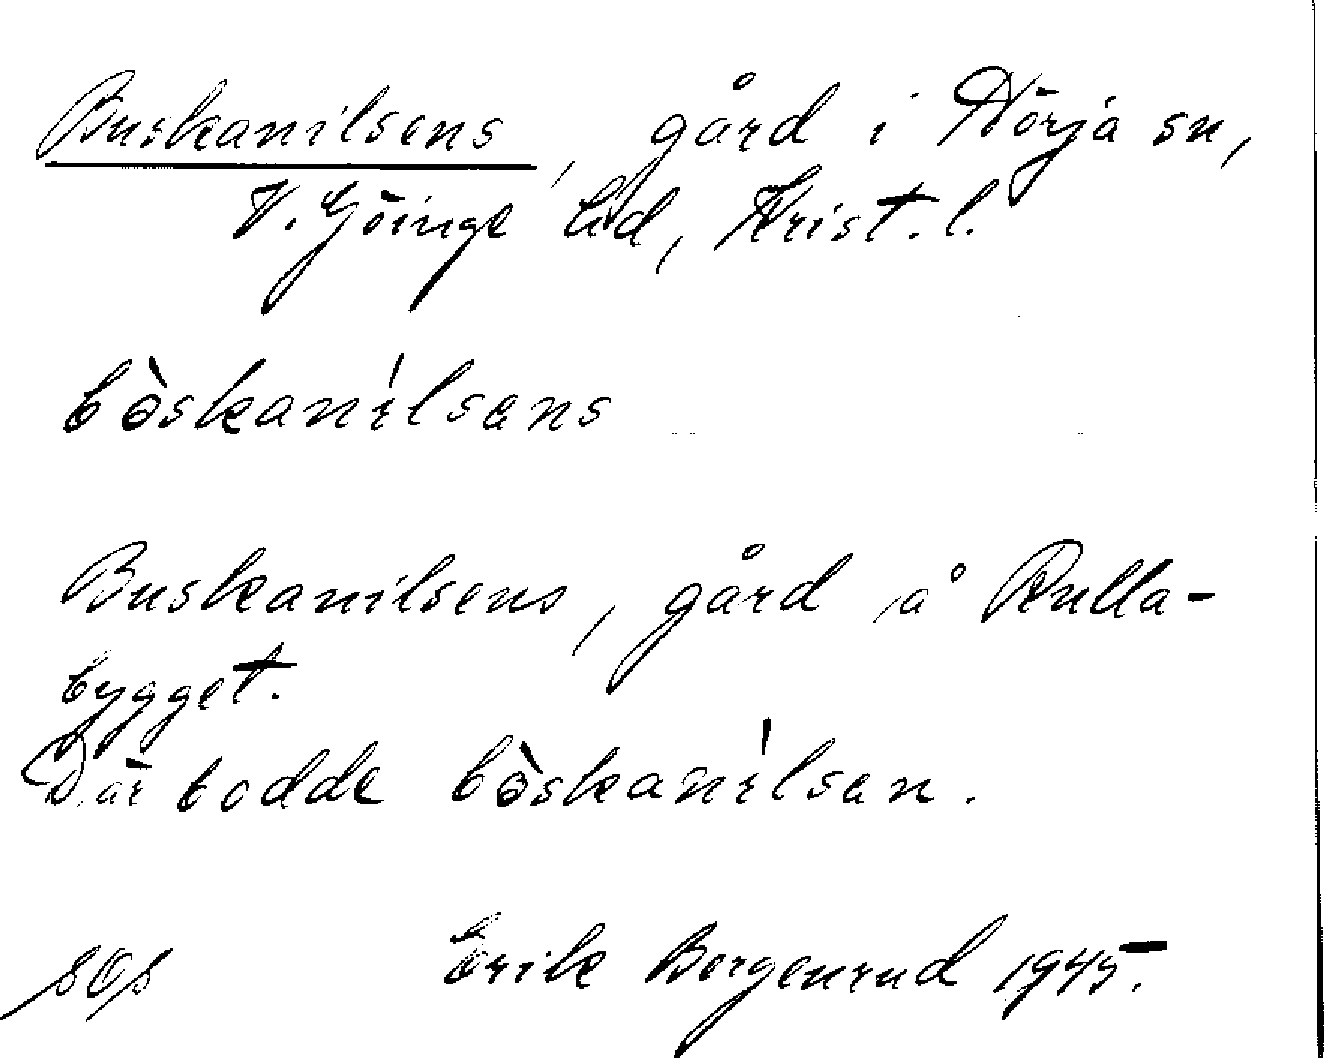 Buskanilsens, gård i Nörja sn,
V. Göinge hd, Krist. l.
bòskanílsens
Buskanilsens, gård å Rulla-
bygget.
Där bodde bòskanílsen.
Erik Borgenrud 1945.